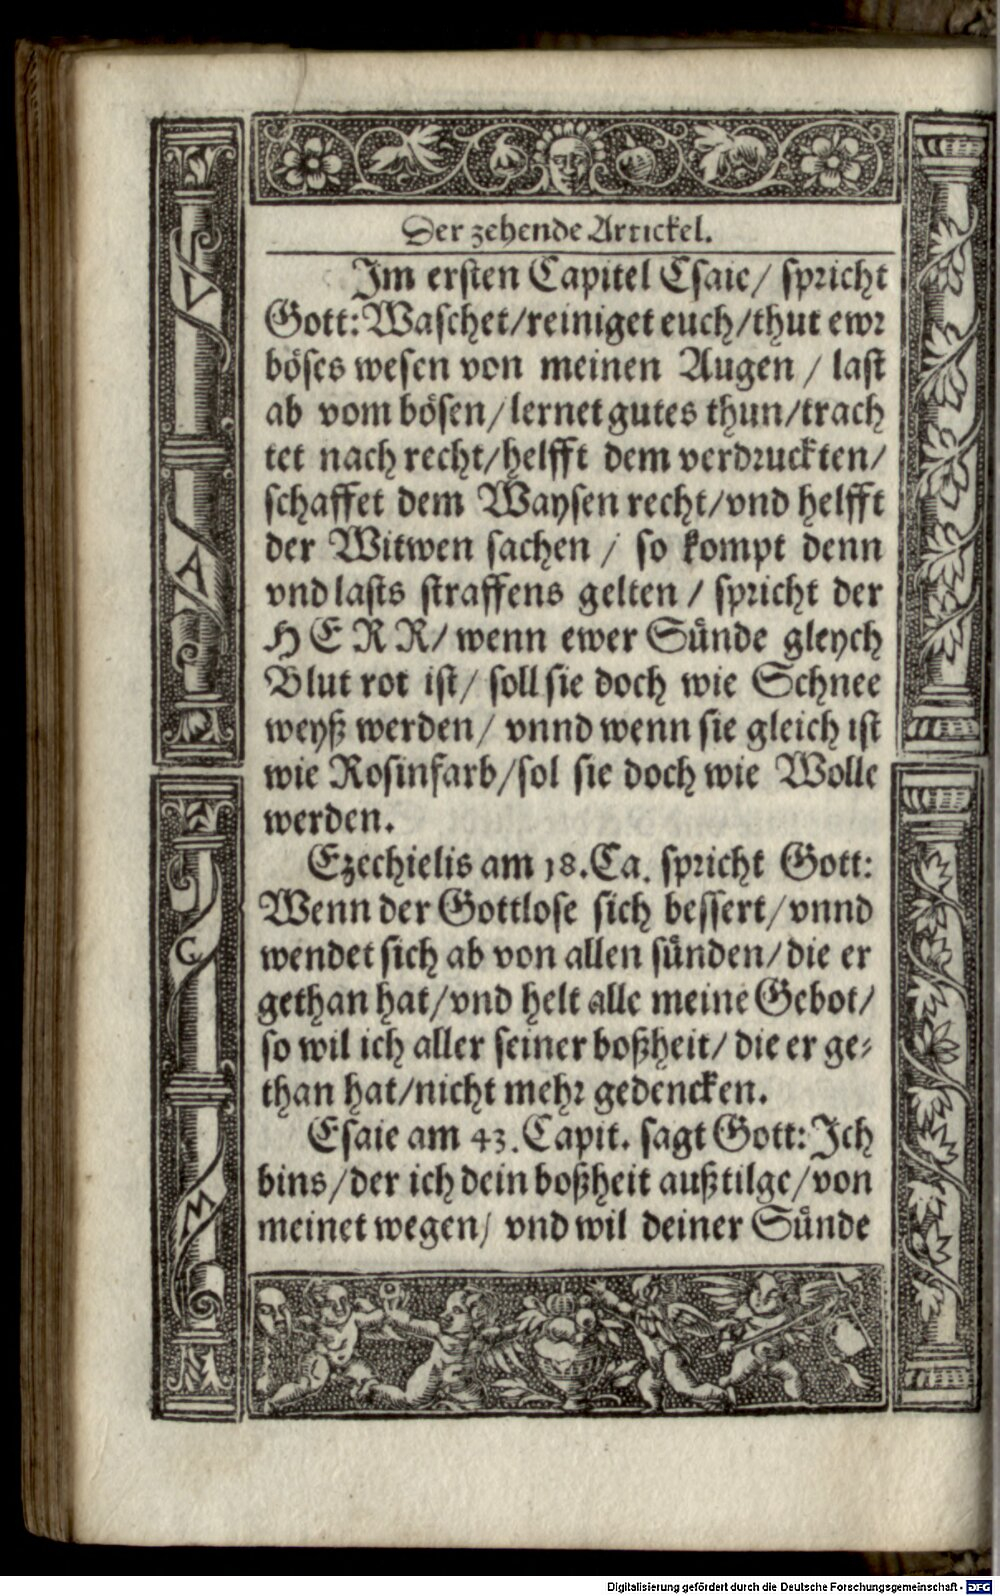 Der zehende Artickel.
Im ersten Capitel Esaie/ spricht
Gott: Waschet/reiniget euch/thut ewr
böses wesen von meinen Augen / last
ab vom bösen/lernet gutes thun/trach
tet nach recht/helfft dem verdruckten/
schaffet dem Waysen recht/vnd helfft
der Witwen sachen / so kompt denn
vnd lasts straffens gelten / spricht der
HERR/ wenn ewer Sünde gleych
Blut rot ist/ soll sie doch wie Schnee
weyß werden/ vnnd wenn sie gleich ist
wie Rosinfarb/sol sie doch wie Wolle
werden.
Ezechielis am 18. Ca. spricht Gott:
Wenn der Gottlose sich bessert/vnnd
wendet sich ab von allen sünden/die er
gethan hat/vnd helt alle meine Gebot/
so wil ich aller seiner boßheit/ die er ge-
than hat/nicht mehr gedencken.
Esaie am 43. Capit. sagt Gott: Ich
bins/der ich dein boßheit außtilge/von
meinet wegen/ vnd wil deiner Sünde
V
A
G
M
Digitalisierung gefördert durch die Deutsche Forschungsgemeinschaft - DFG